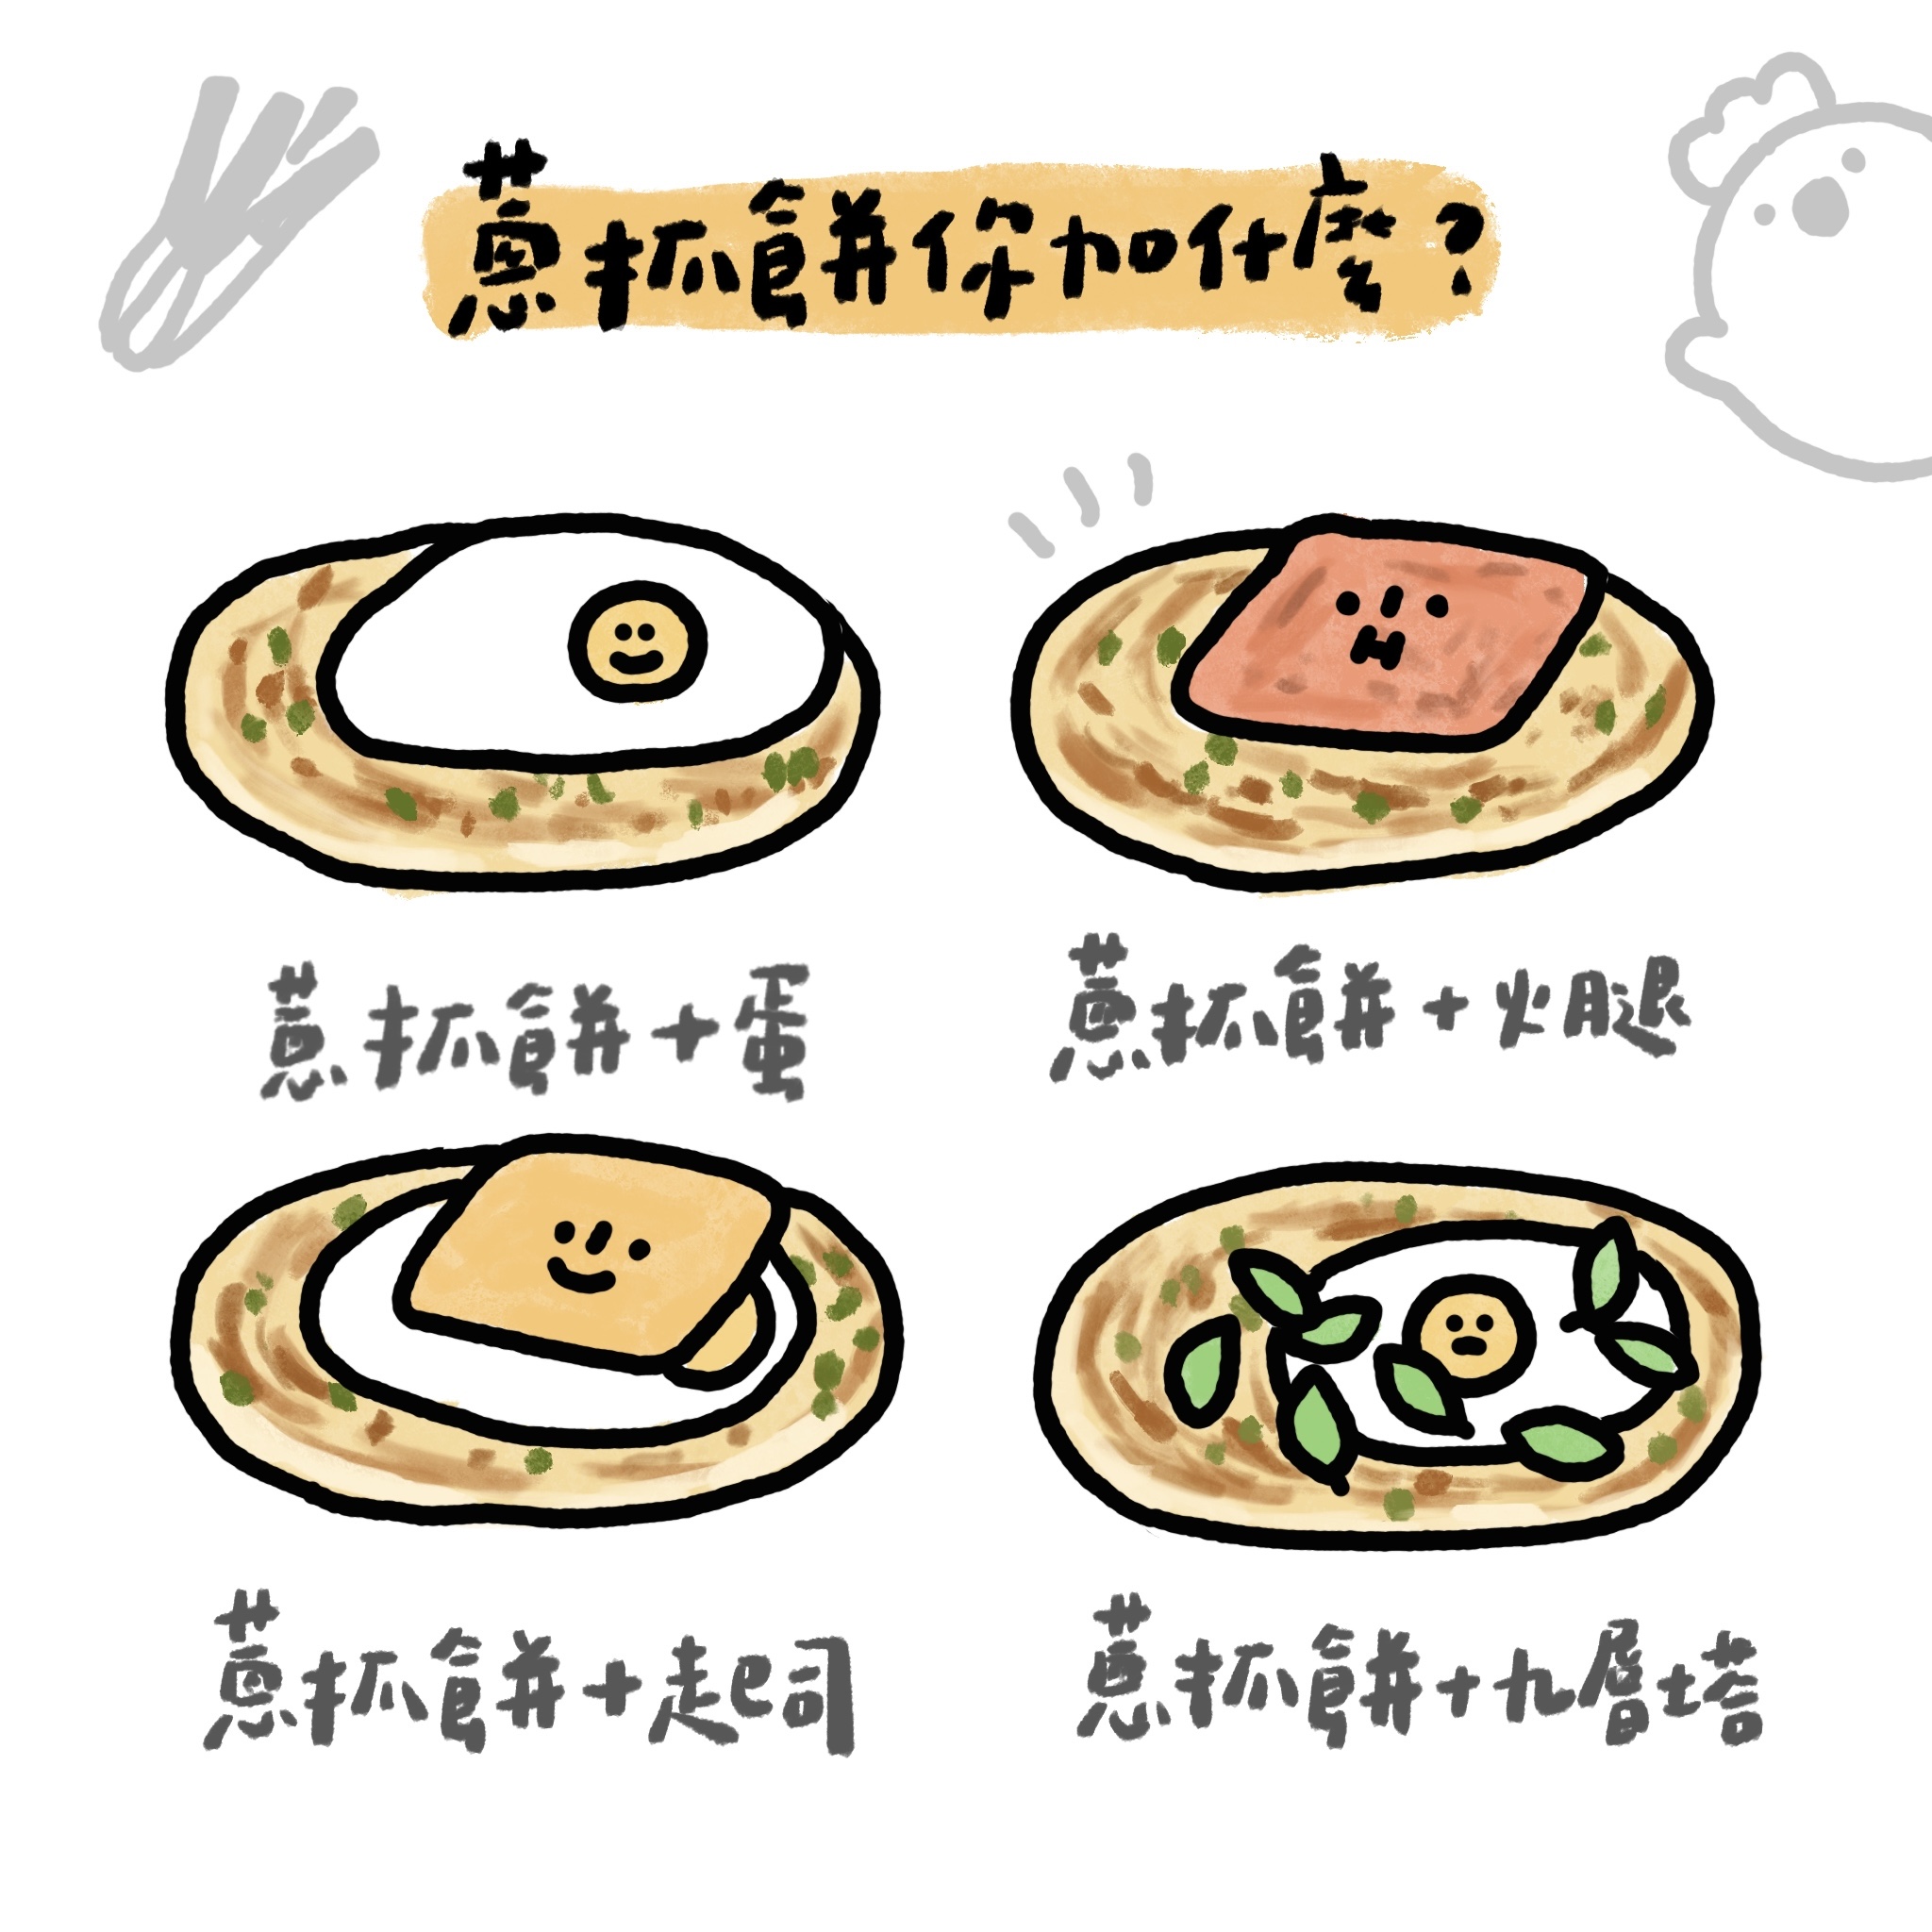 蔥抓餅你加什麼?
蔥抓餅+蛋
蔥抓餅+火腿
蔥抓餅+起司
蔥抓餅+九層塔